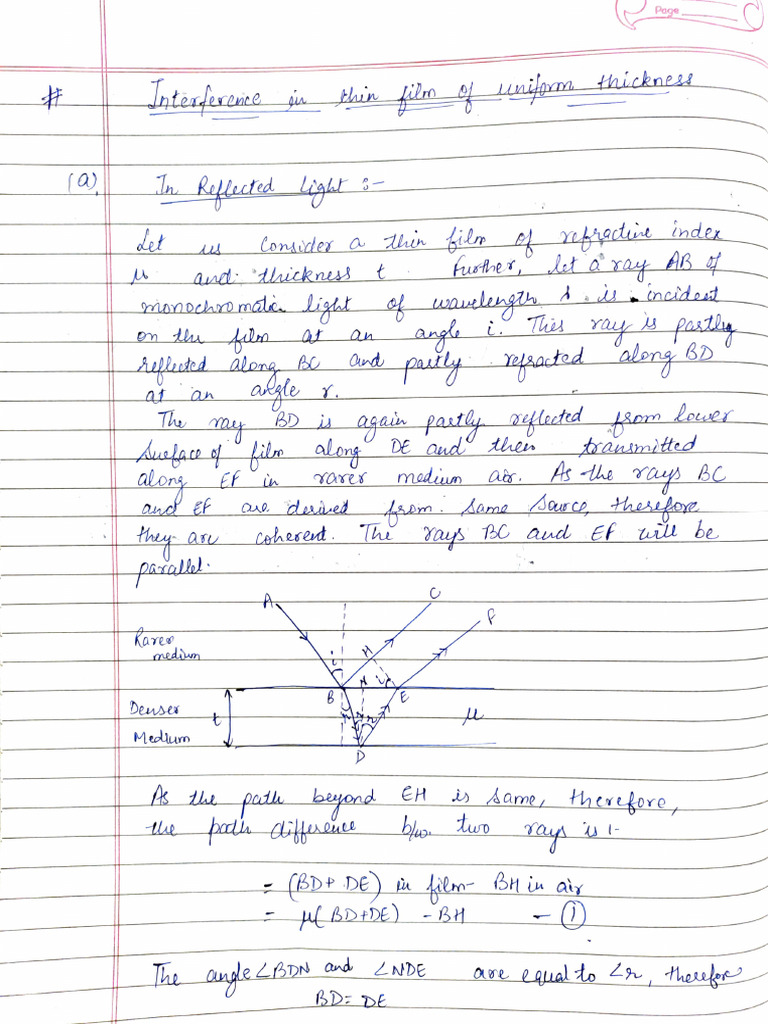 Page
# Interference in thin film of uniform thickness
(a). In Reflected Light :-
Let us consider a thin film of refractive index
μ and thickness t. Further, let a ray AB of
monochromatic light of wavelength λ is incident
on the film at an angle i. This ray is partly
reflected along BC and partly refracted along BD
at an angle r.
The ray BD is again partly reflected from lower
surface of film along DE and then transmitted
along EF in rarer medium air. As the rays BC
and EF are derived from same source, therefore
they are coherent. The rays BC and EF will be
parallel.
A C
F
Rarer
medium
i H
N i
B E
Denser
Medium
t r r r μ
D
As the path beyond EH is same, therefore,
the path difference b/w. two rays is :-
= (BD + DE) in film - BH in air
= μ(BD+DE) - BH - (1)
The angle ∠BDN and ∠NDE are equal to ∠r, therefore
BD = DE